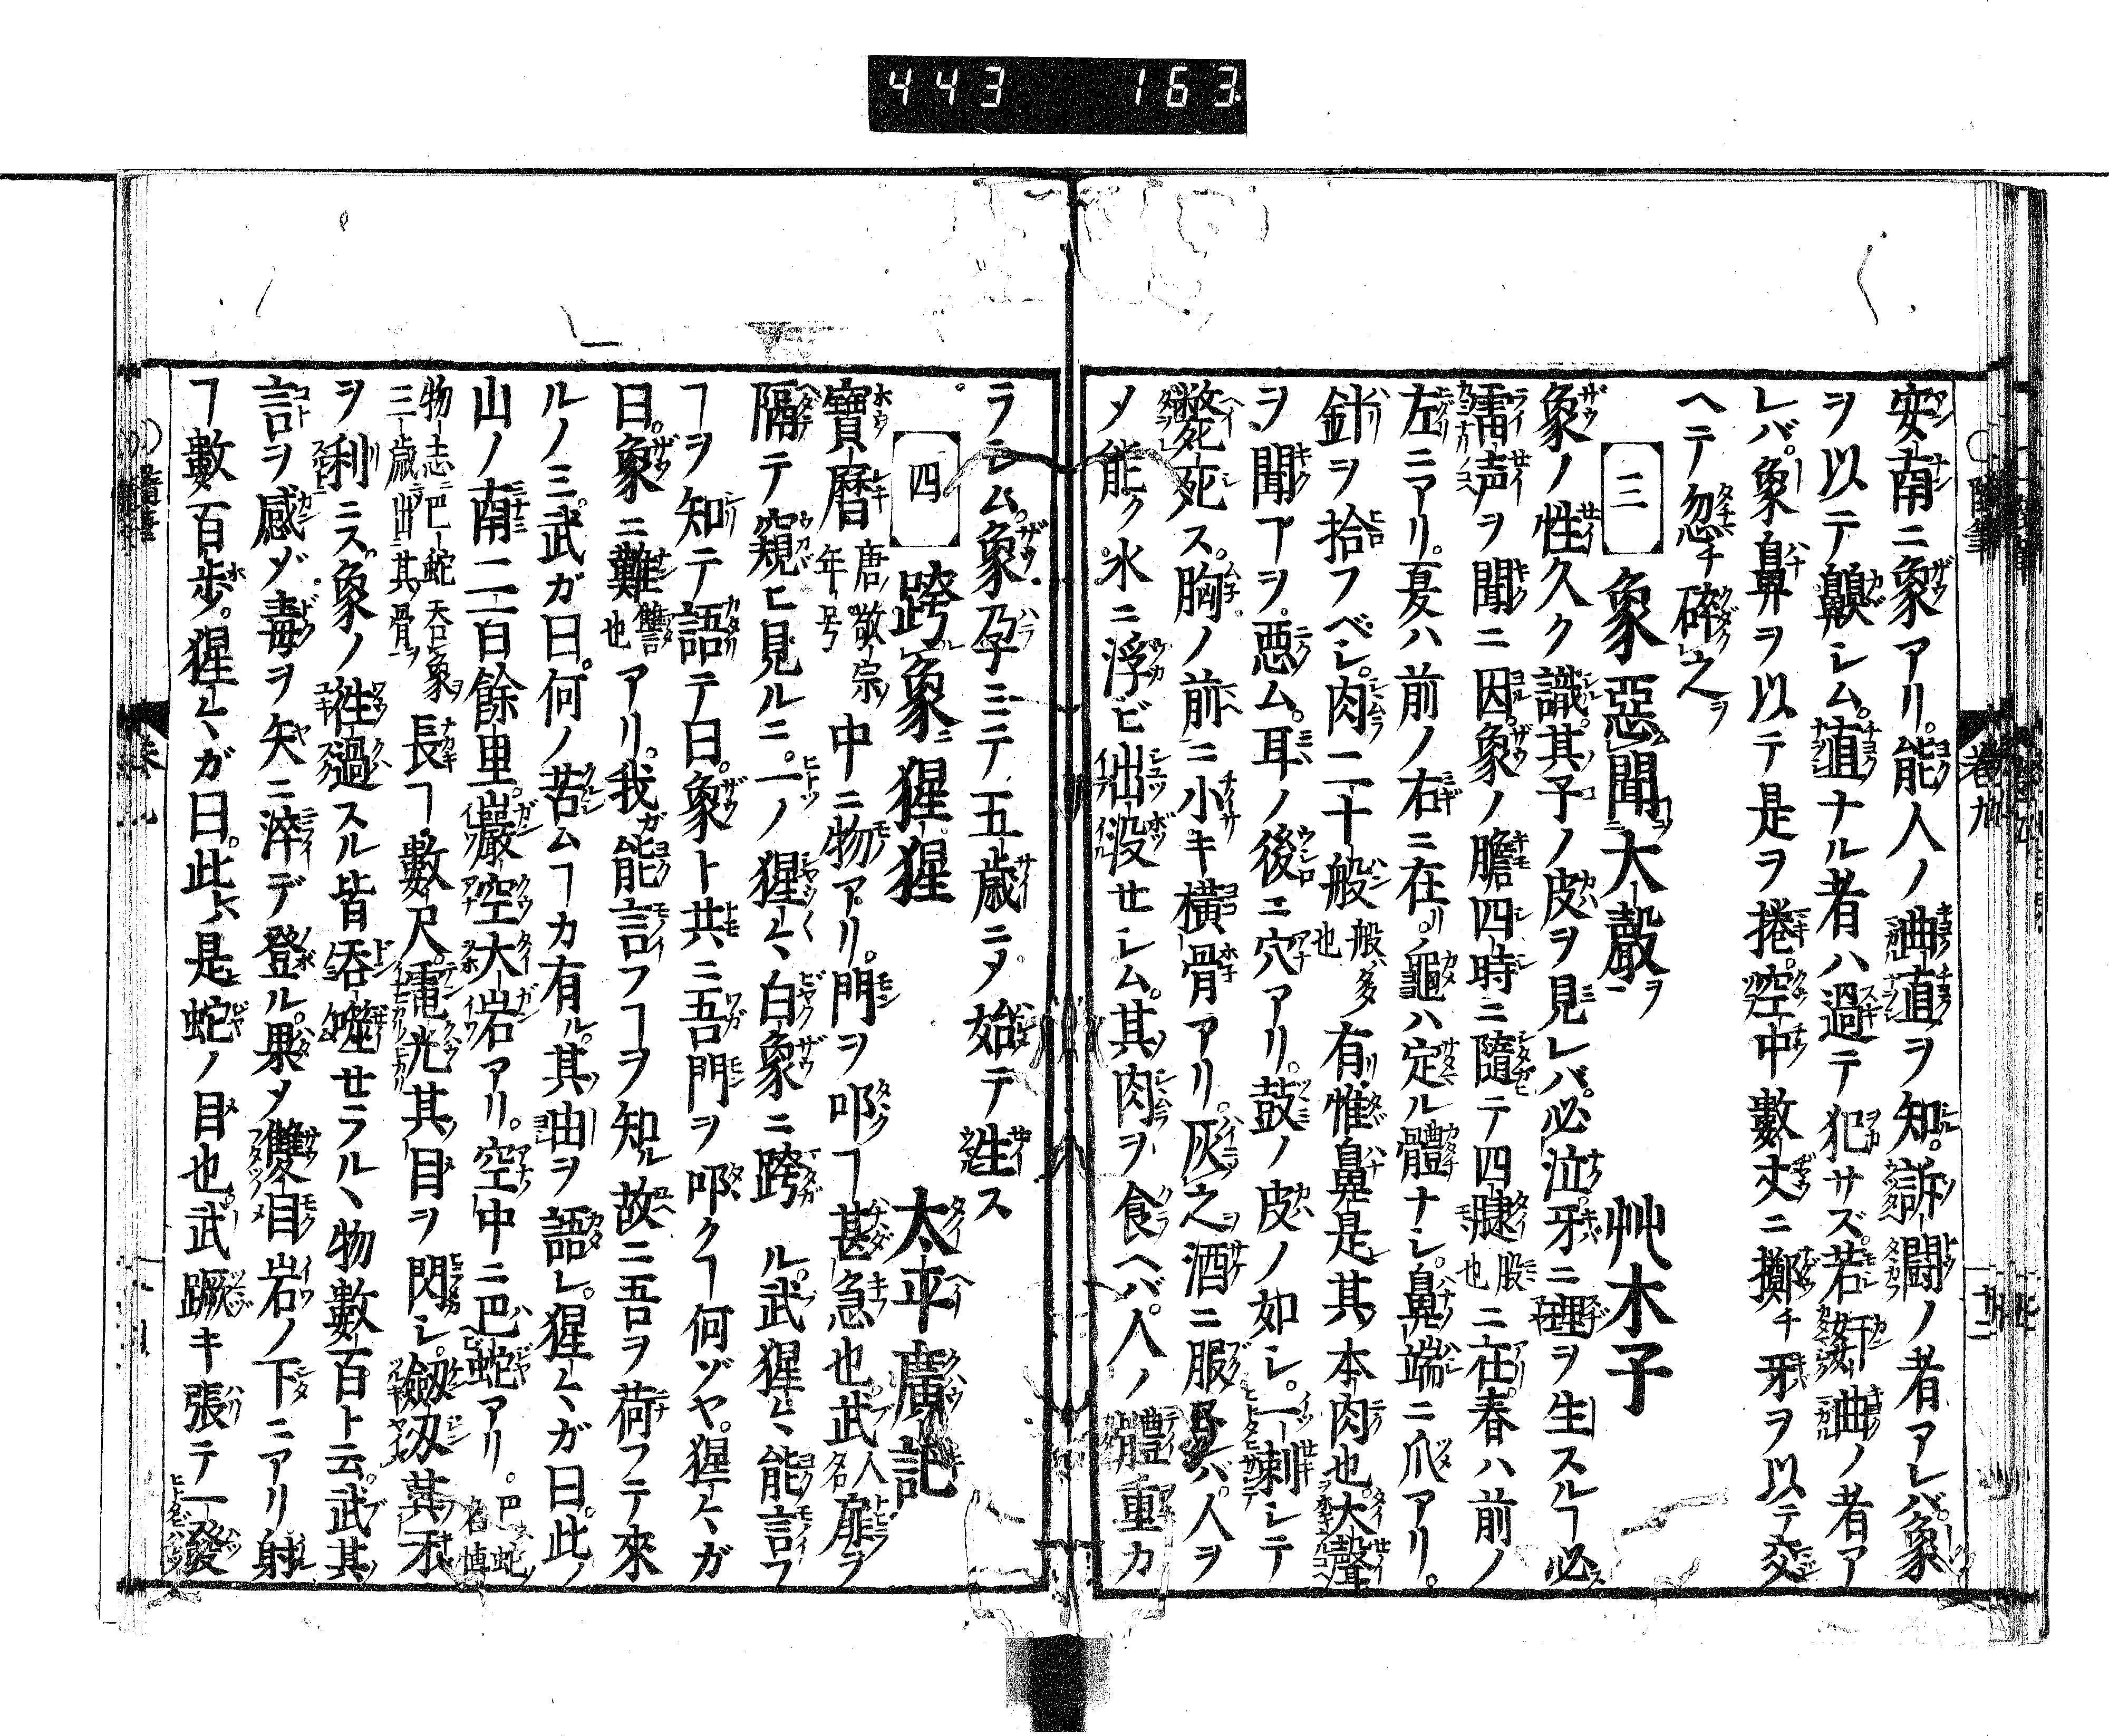 443 163
安南ニ象アリ。能人ノ曲直ヲ知。訴闘ノ者アレバ。象
ヲ以テ顛レム。直ナル者ハ過テ犯サズ。若奸曲ノ者ア
レバ。象鼻ヲ以テ是ヲ捲。空中數丈ニ擲チ牙ヲ以テ交
ヘテ忽チ碎之ヲ
三 象惡聞大聲ヲ 艸木子
象ノ性久ク識。其子ノ皮ヲ見レバ。必泣。牙ニ理ヲ生スルヿ必
雷声ヲ聞ニ因。象ノ膽四時ニ隨テ四腿股也ニ在。春ハ前ノ
左ニアリ。夏ハ前ノ右ニ在リ。龜ハ定ル體ナシ。鼻端ニ爪アリ。
針ヲ拾フベレ。肉二十般般ハ多也有リ。惟鼻是其本肉也。大聲
ヲ聞ヿヲ惡ム。耳ノ後ニ穴アリ。鼓ノ皮ノ如レ。一刺レテ
斃死ス。胸ノ前ニ小キ橫骨アリ。灰之酒ニ服レバ。人ヲ
〆能ク水ニ浮ビ出没せレム。其肉ヲ食ヘバ。人ノ體重カ
ラレム。象孕ミテ五歳ニ〆始テ生ス
四 跨象猩猩 太平廣記
寶曆唐敬宗ノ年号中ニ物アリ。門ヲ叩ヿ甚急也。武人名扉ヲ
隔テ窺ヒ見ルニ。一ノ猩々白象ニ跨ル。武猩々能言フ
ヿヲ知テ語テ曰。象ト共ニ吾門ヲ叩クヿ何ゾヤ。猩々ガ
曰。象ニ難讐也アリ。我ガ能言フヿヲ知ル故ニ吾ヲ荷フテ來
ルノミ。武ガ曰。何ノ苦ムヿカ有ル。其由ヲ語レ。猩々ガ曰。此ノ
山ノ南二百餘里。巖空大岩アリ。空中ニ巴蛇アリ。巴蛇ハ
物志ニ巴蛇呑象ヲ三歳ニ〆出其骨ヲ長ヿ數尺。電光其目ヲ閃レ。劔刄其牙
ヲ利ニス。象ノ往過スル皆吞噬せラル、物數百ト云。武其
言ヲ感ゾ毒ヲ矢ニ淬デ登ル。果〆雙目岩ノ下ニアリ射
ヿ數百歩。猩々ガ曰。此ハ是蛇ノ目也。武蹶キ張テ一發